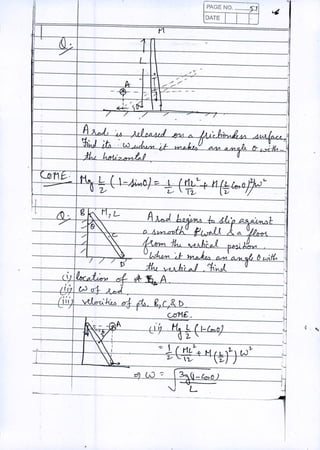 PAGE NO. 51
DATE
Q:
M
L
A
θ
A rod is released on a frictionless surface,
find its ω when it makes an angle θ with
the horizontal
COME. Mg L/2 (1-sinθ) = 1/2 (ML²/12 + M(L/2 cosθ)²)ω²
Q: B M, L
θ
C
D
A rod begins to slip against
a smooth wall & a floor
from the vertical position
when it makes an angle θ with
the vertical. find
(i) location of A
(ii) ω of rod
(iii) velocities of pts. B, C, & D.
COME.
A
(ii) Mg L/2 (1-cosθ)
= 1/2 (ML²/12 + M(L/2)²) ω²
⇒ ω = √3g(1-cosθ)/L